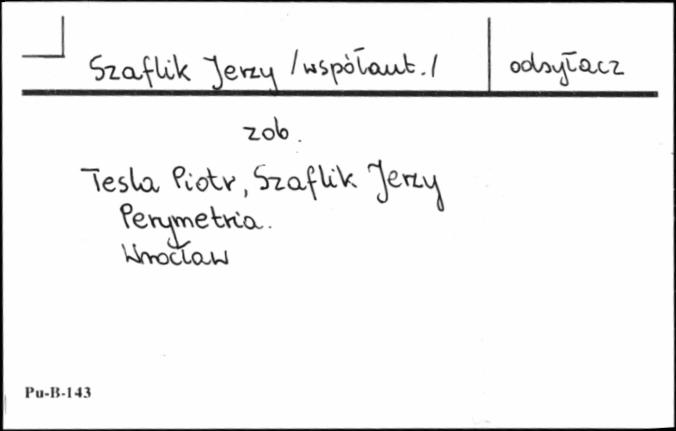 Szaflik Jerzy /współaut./ odsyłacz
zob.
Tesla Piotr, Szaflik Jerzy
Perymetria.
Wrocław
Pu-B-143